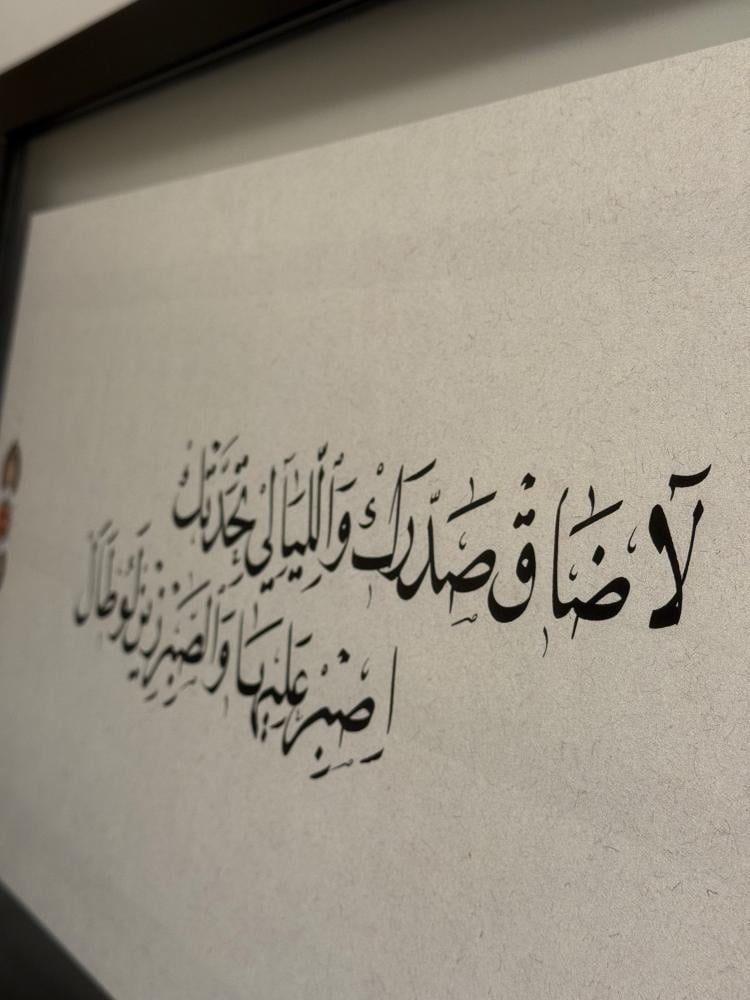 لَا ضَاقْ صَدْرَكْ وَاللَّيَالِي تَحَدَّتْكْ
اِصْبِرْ عَلَيْهَا وَالصَّبِرْ زِينْ لَوْ طَالْ